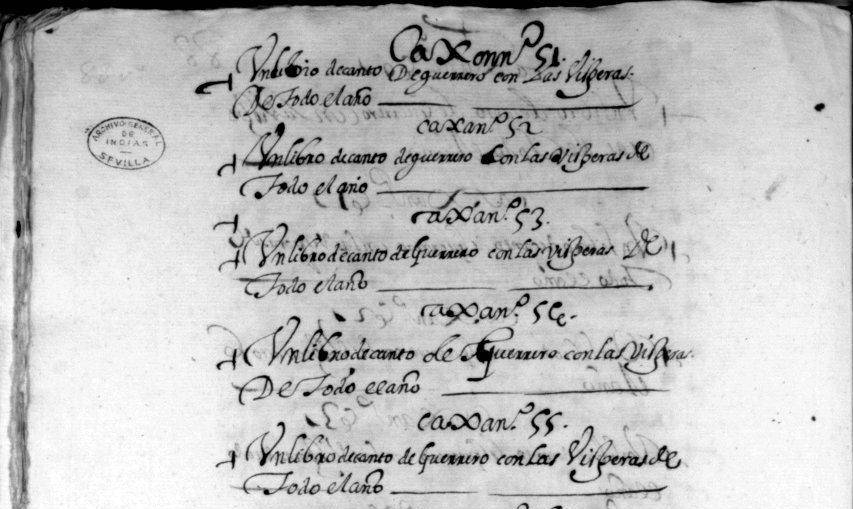 Caxon nº 51.
Un libro de canto De guerrero con Las Visperas.
De Todo el año
caxa nº 52
ARCHIVO GENERAL
DE
INDIAS
SEVILLA
Un libro de canto de guerrero con las visperas de
Todo el año
caxa nº 53.
Un libro de canto de Guerrero con las visperas De
Todo el año
caxa nº 54.
Un libro de canto de Guerrero con las Visperas.
De Todo el año
caxa nº 55.
Un libro de canto de Guerrero con Las Visperas de
Todo el año